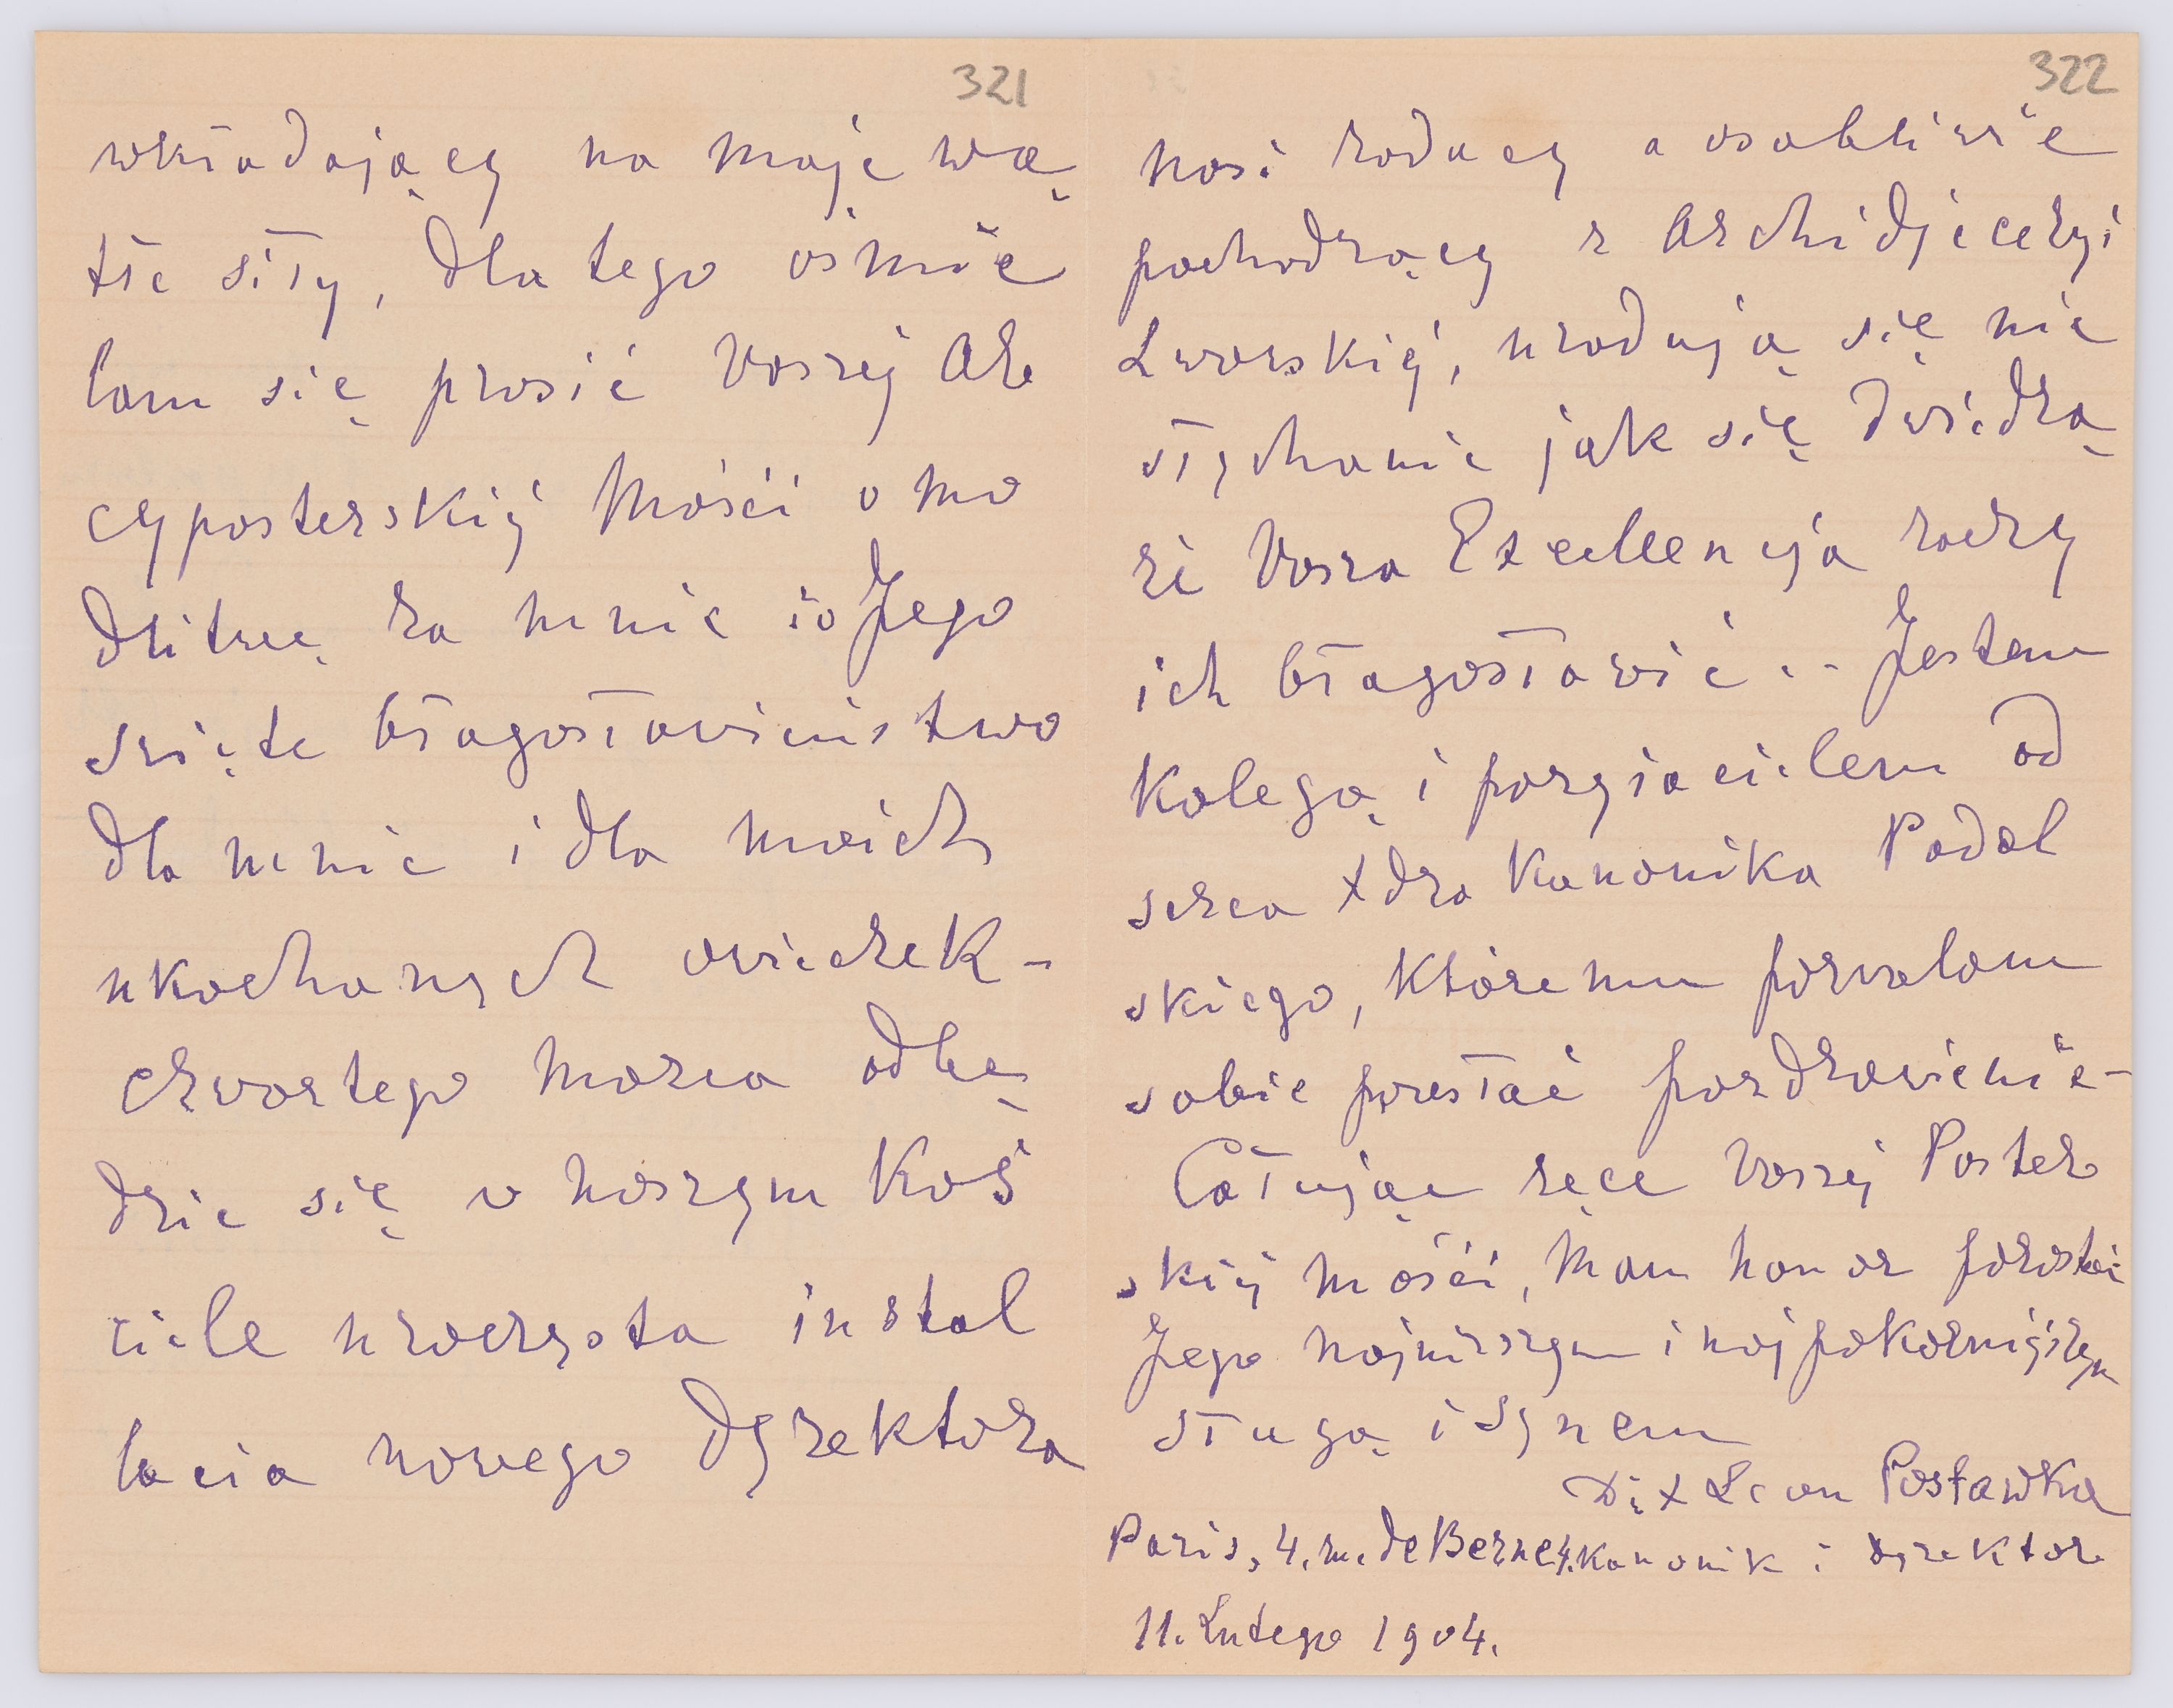 321
wkładający na moje wą
tłe siły, dla tego ośmie
lam się prosić Waszej Ar
cypasterskiej Mości o mo
dlitwę za mnie i o Jego
święte błogosławieństwo
dla mnie i dla moich
ukochanych owieczek -
czwartego marca odbę
dzie się w naszym Koś
ciele uroczysta instal
lacia nowego Dyrektora
322
nasi rodacy a osobliwie
pochodzący z Archidjecezyi
Lwowskiej, uradują się nie
słychanie jak się dwiedzą
że Wasza Excellencja raczy
ich błogosławić.- Jestem
Kolegą i przyjacielem od
serca X dra Kanonika Podol
skiego, któremu pozwalam
sobie przesłać pozdrowienie-
Całując ręce Waszej Paster
skiej Mości, mam honor
Jego najniższym i najpokorniejszym
sługą i synem
X Leon Postawka
Paris, 4. ru. de Berne, 4. Kanonik i dyrektor
11. Lutego 1904.